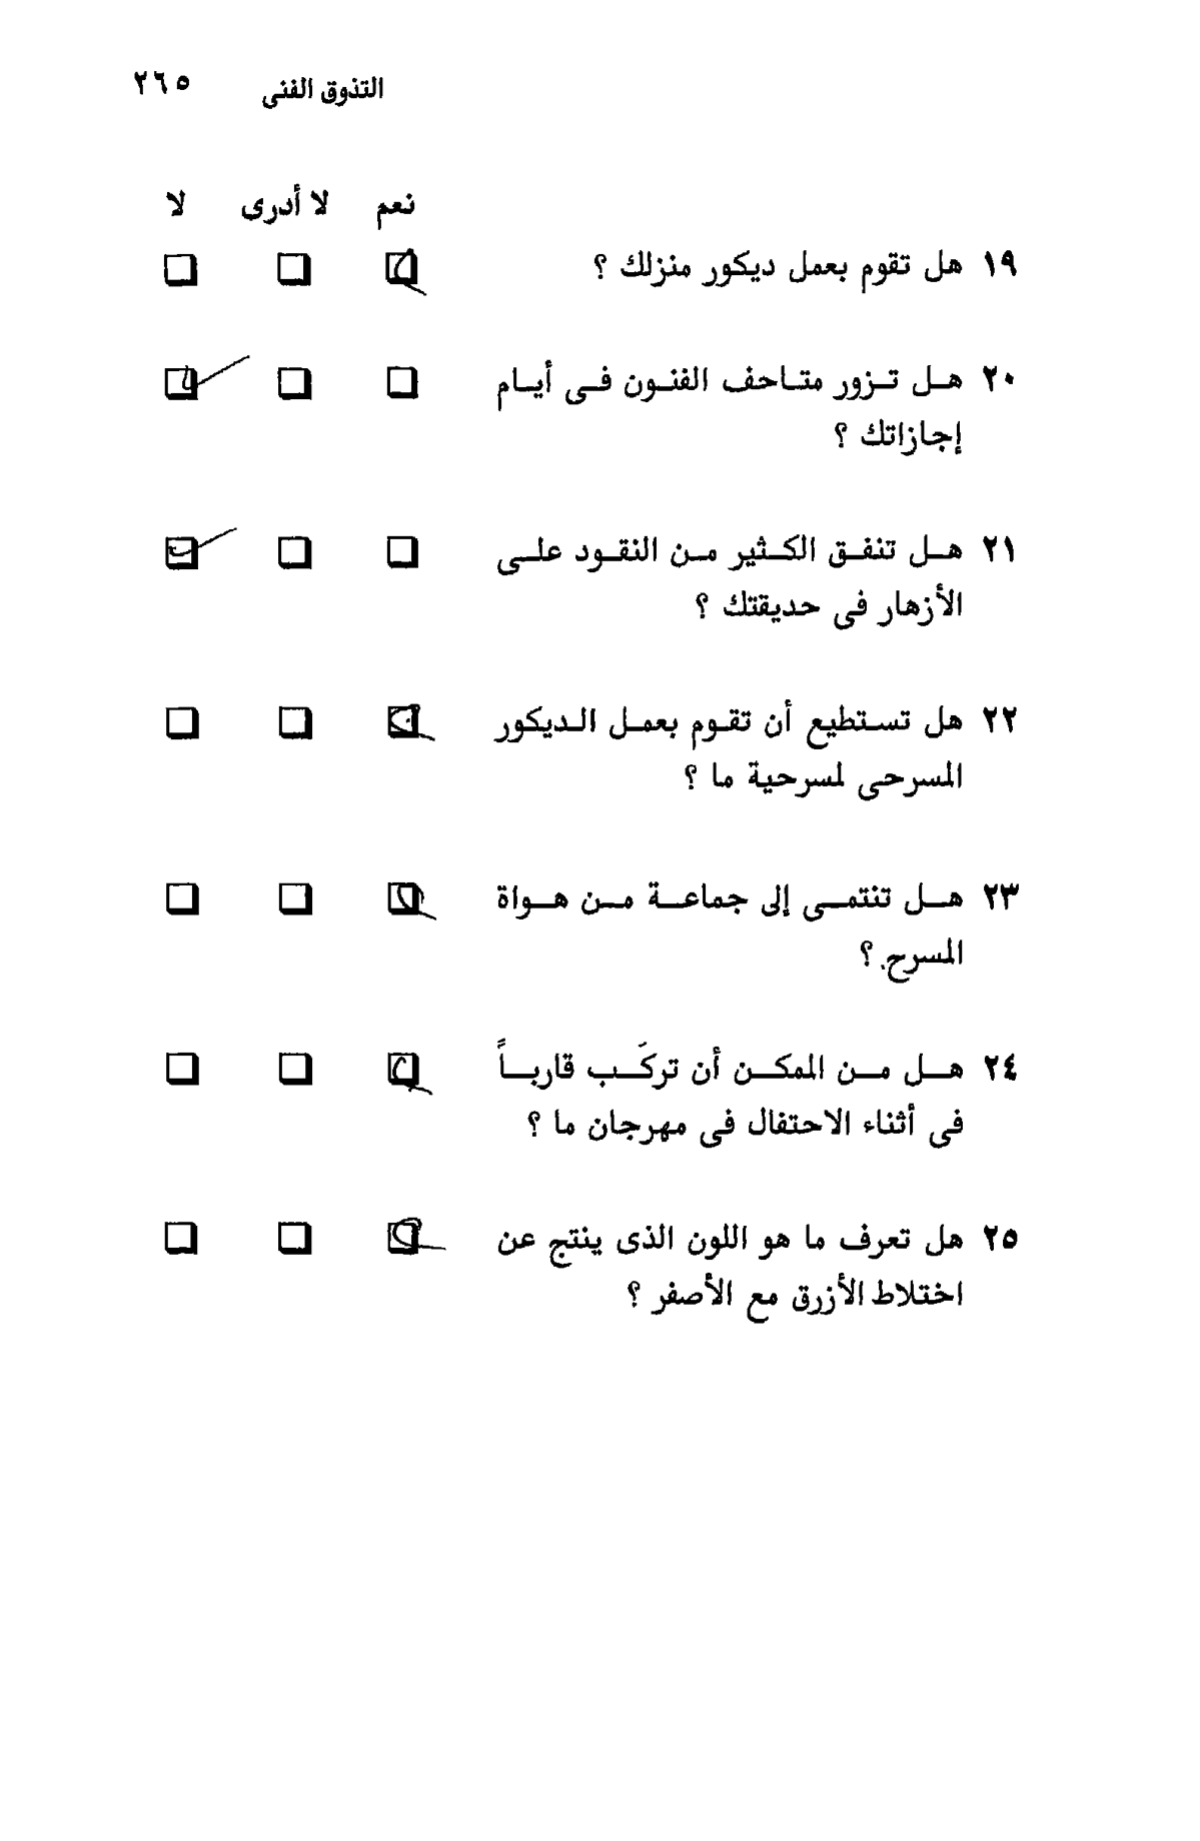 التذوق الفنى ٢٦٥
نعم لا أدرى لا
١٩ هل تقوم بعمل ديكور منزلك ؟
٢٠ هـل تـزور متـاحف الفنـون فـى أيـام
إجازاتك ؟
٢١ هـل تنفـق الكـثير مـن النقـود علـى
الأزهار فى حديقتك ؟
٢٢ هل تسـتطيع أن تقـوم بعمـل الـديكور
المسرحى لمسرحية ما ؟
٢٣ هــل تنتمــى إلى جماعــة مــن هــواة
المسرح ؟
٢٤ هــل مــن الممكــن أن تركَــب قاربــاً
فى أثناء الاحتفال فى مهرجان ما ؟
٢٥ هل تعرف ما هو اللون الذى ينتج عن
اختلاط الأزرق مع الأصفر ؟